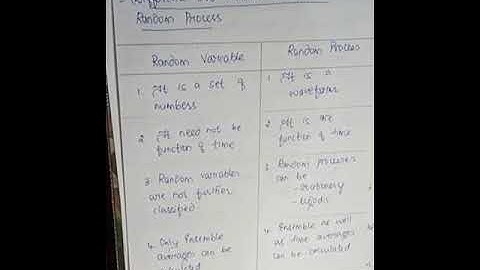 Random Process
Random Variable
Random Process
1. It is a set of
numbers
1. It is a
waveform
2. It need not be
function of time
2. It is
function of time
3. Random variables
are not further
classified
3. Random processes
can be
- stationary
4. Only Ensemble
averages can be
calculated
4. Ensemble as well
as time averages
can be calculated